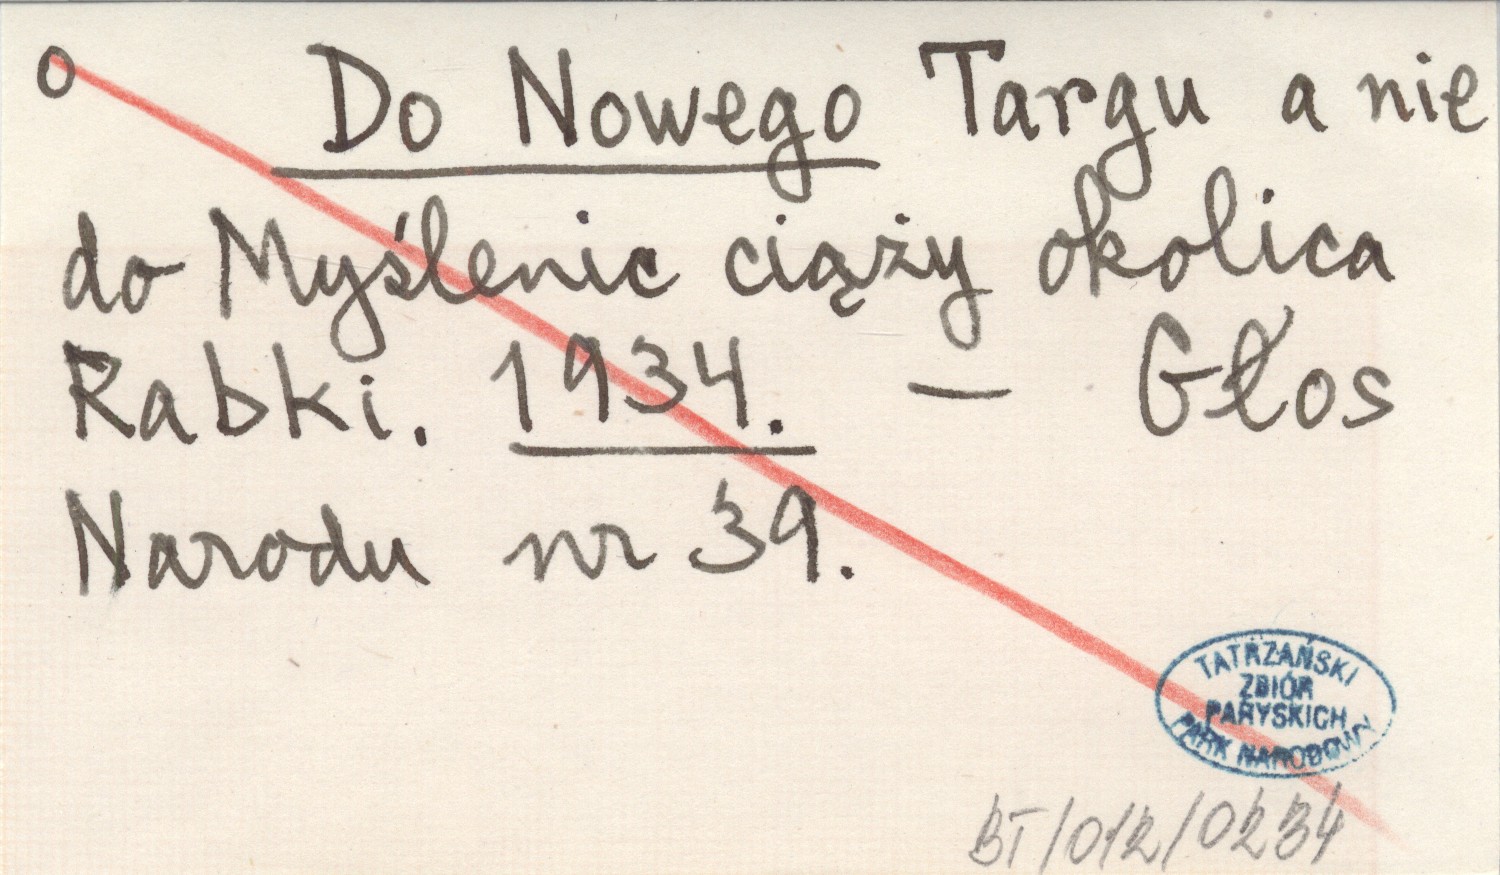 o Do Nowego Targu a nie
do Myślenic ciąży okolica
Rabki. 1934. — Głos
Narodu nr 39.
TATRZAŃSKI
ZBIÓR
PARYSKICH
PARK NARODOWY
BT/012/0234